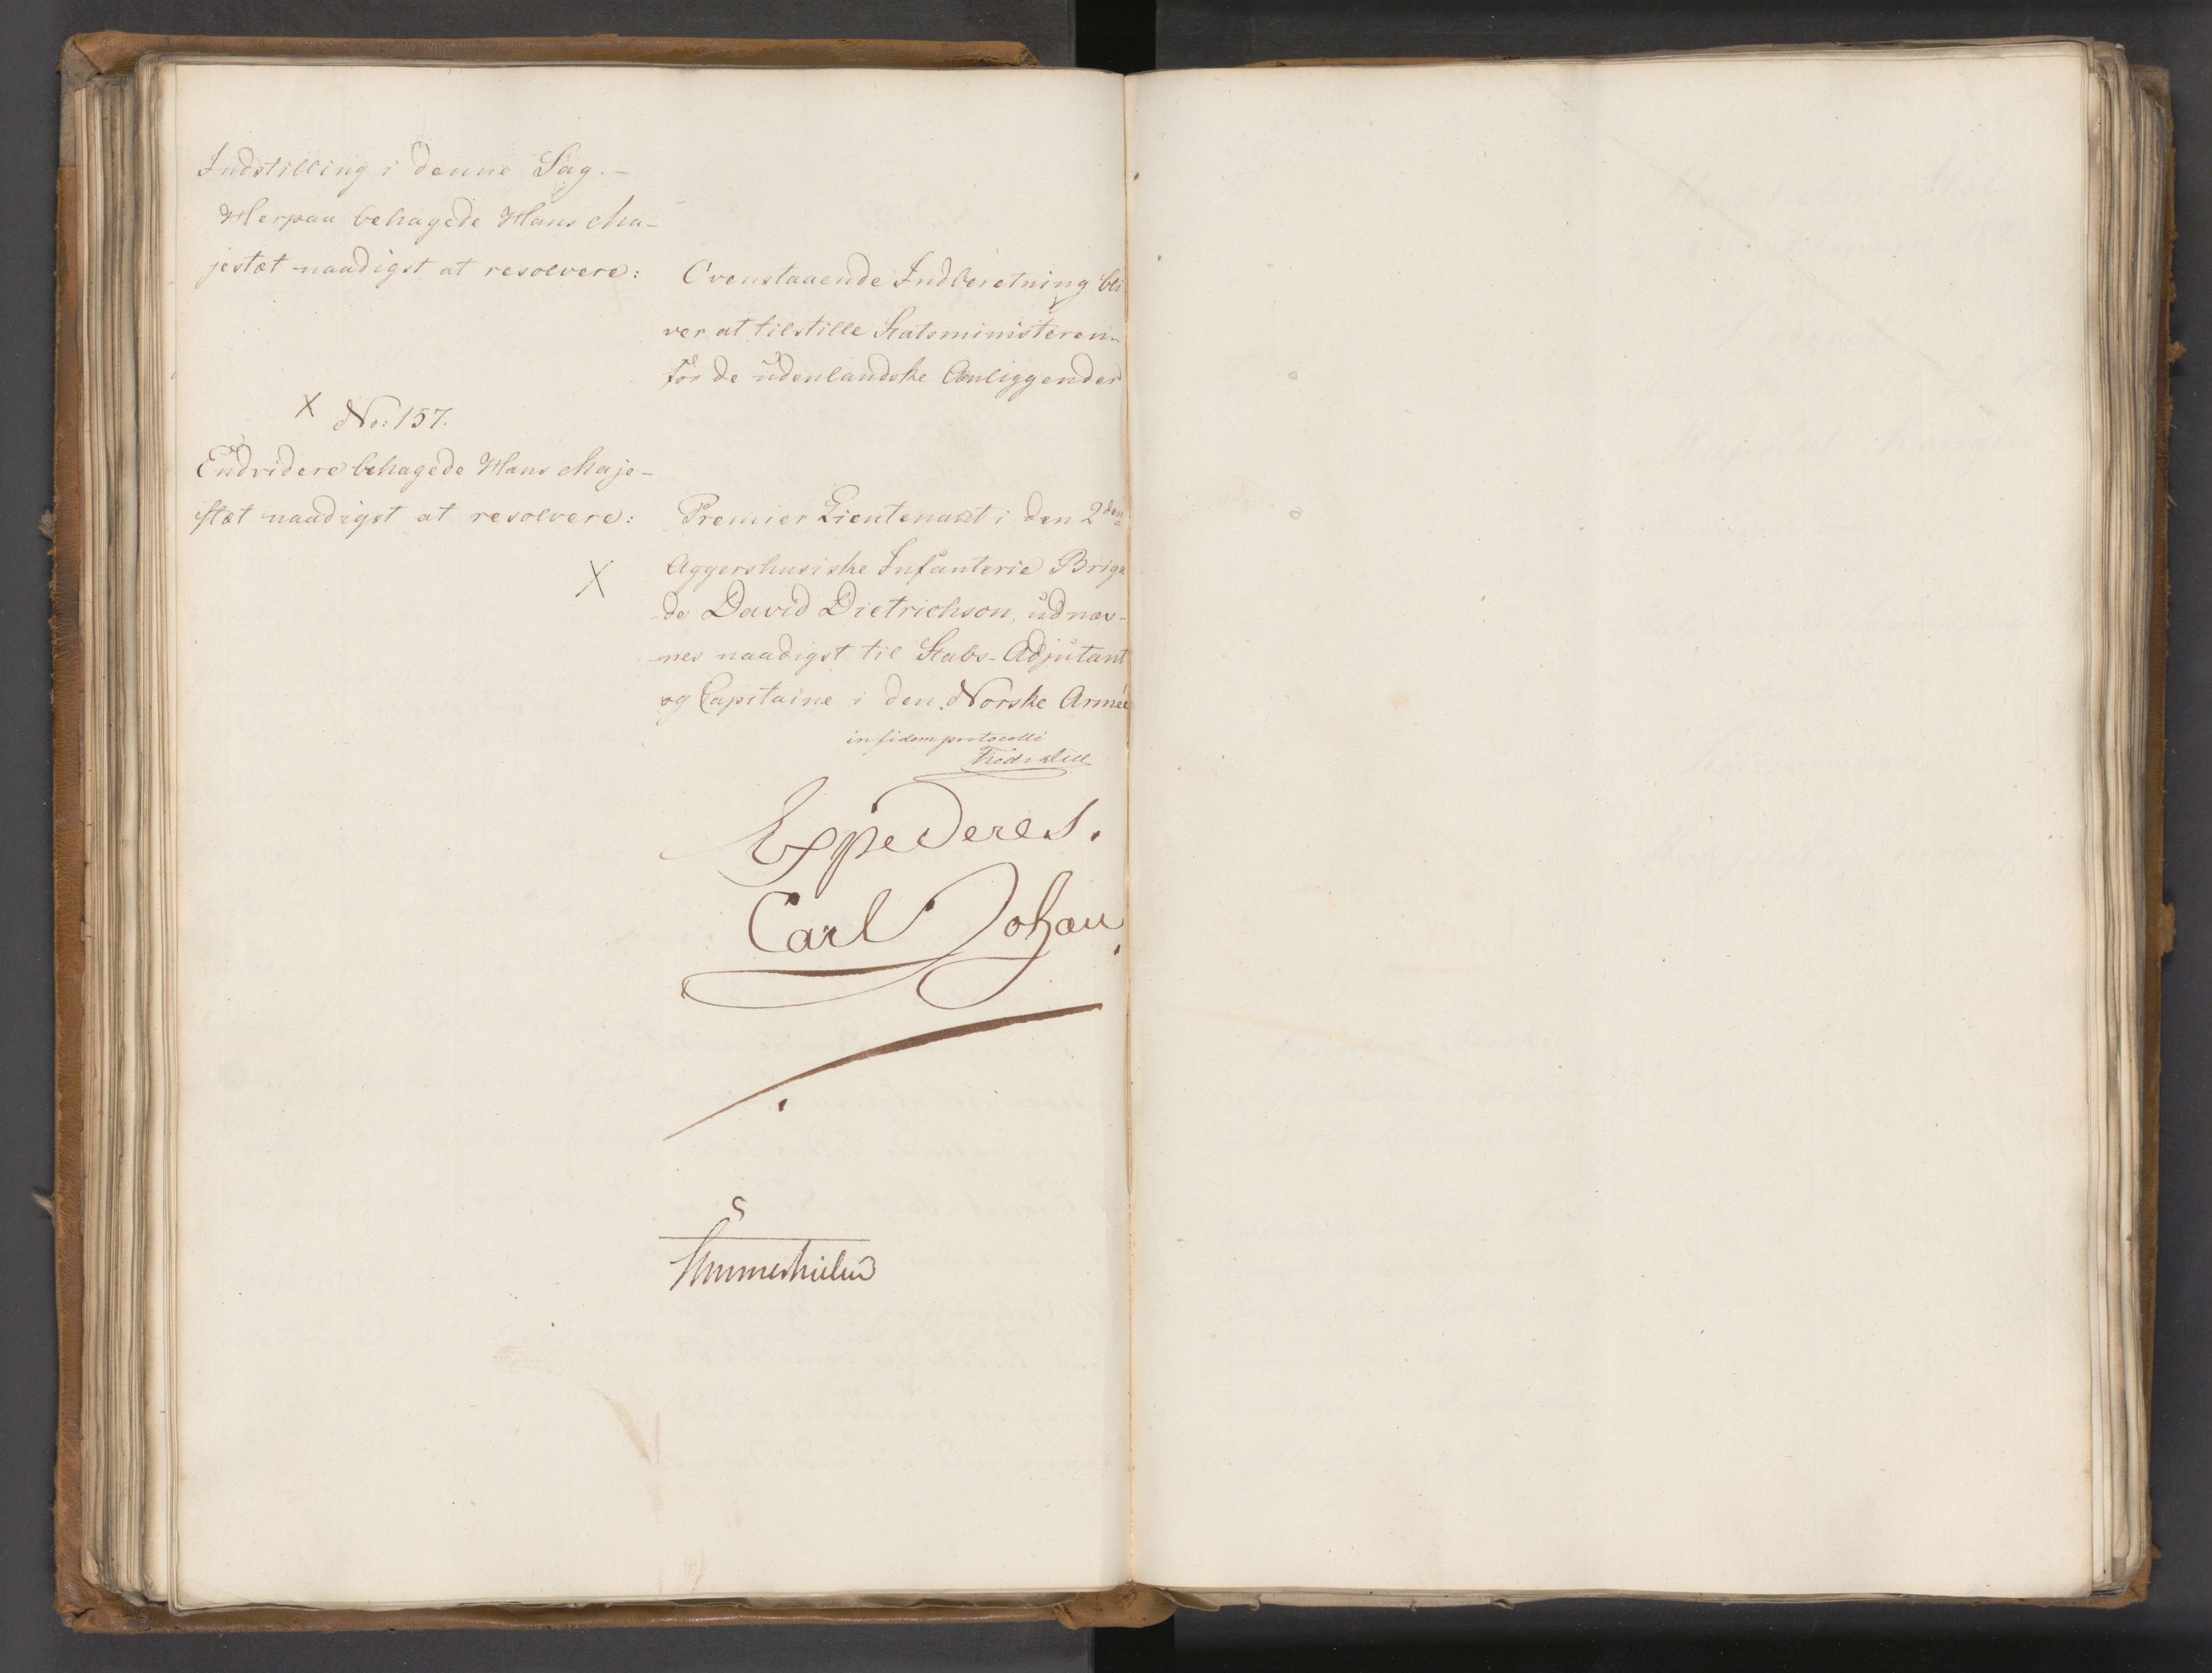 Indstilling i denne Sag. –
Herpaa behagede Hans Ma-
jestæt naadigst at resolvere:
Ovenstaaende Indberetning bli
ver at tilstille Statsministeren
for de udenlandske Anliggender
X No: 157.
Endvidere behagede Hans Maje-
stæt naadigst at resolvere:
Premier Lieutenant i den 2den
X
Aggershusiske Infanterie Briga
de David Dietrichson, udnæv-
nes naadigst til Stabs-Adjutant
og Capitaine i den Norske Armée
in fidem protocolli
Fredr
Expederes.
Carl Johan